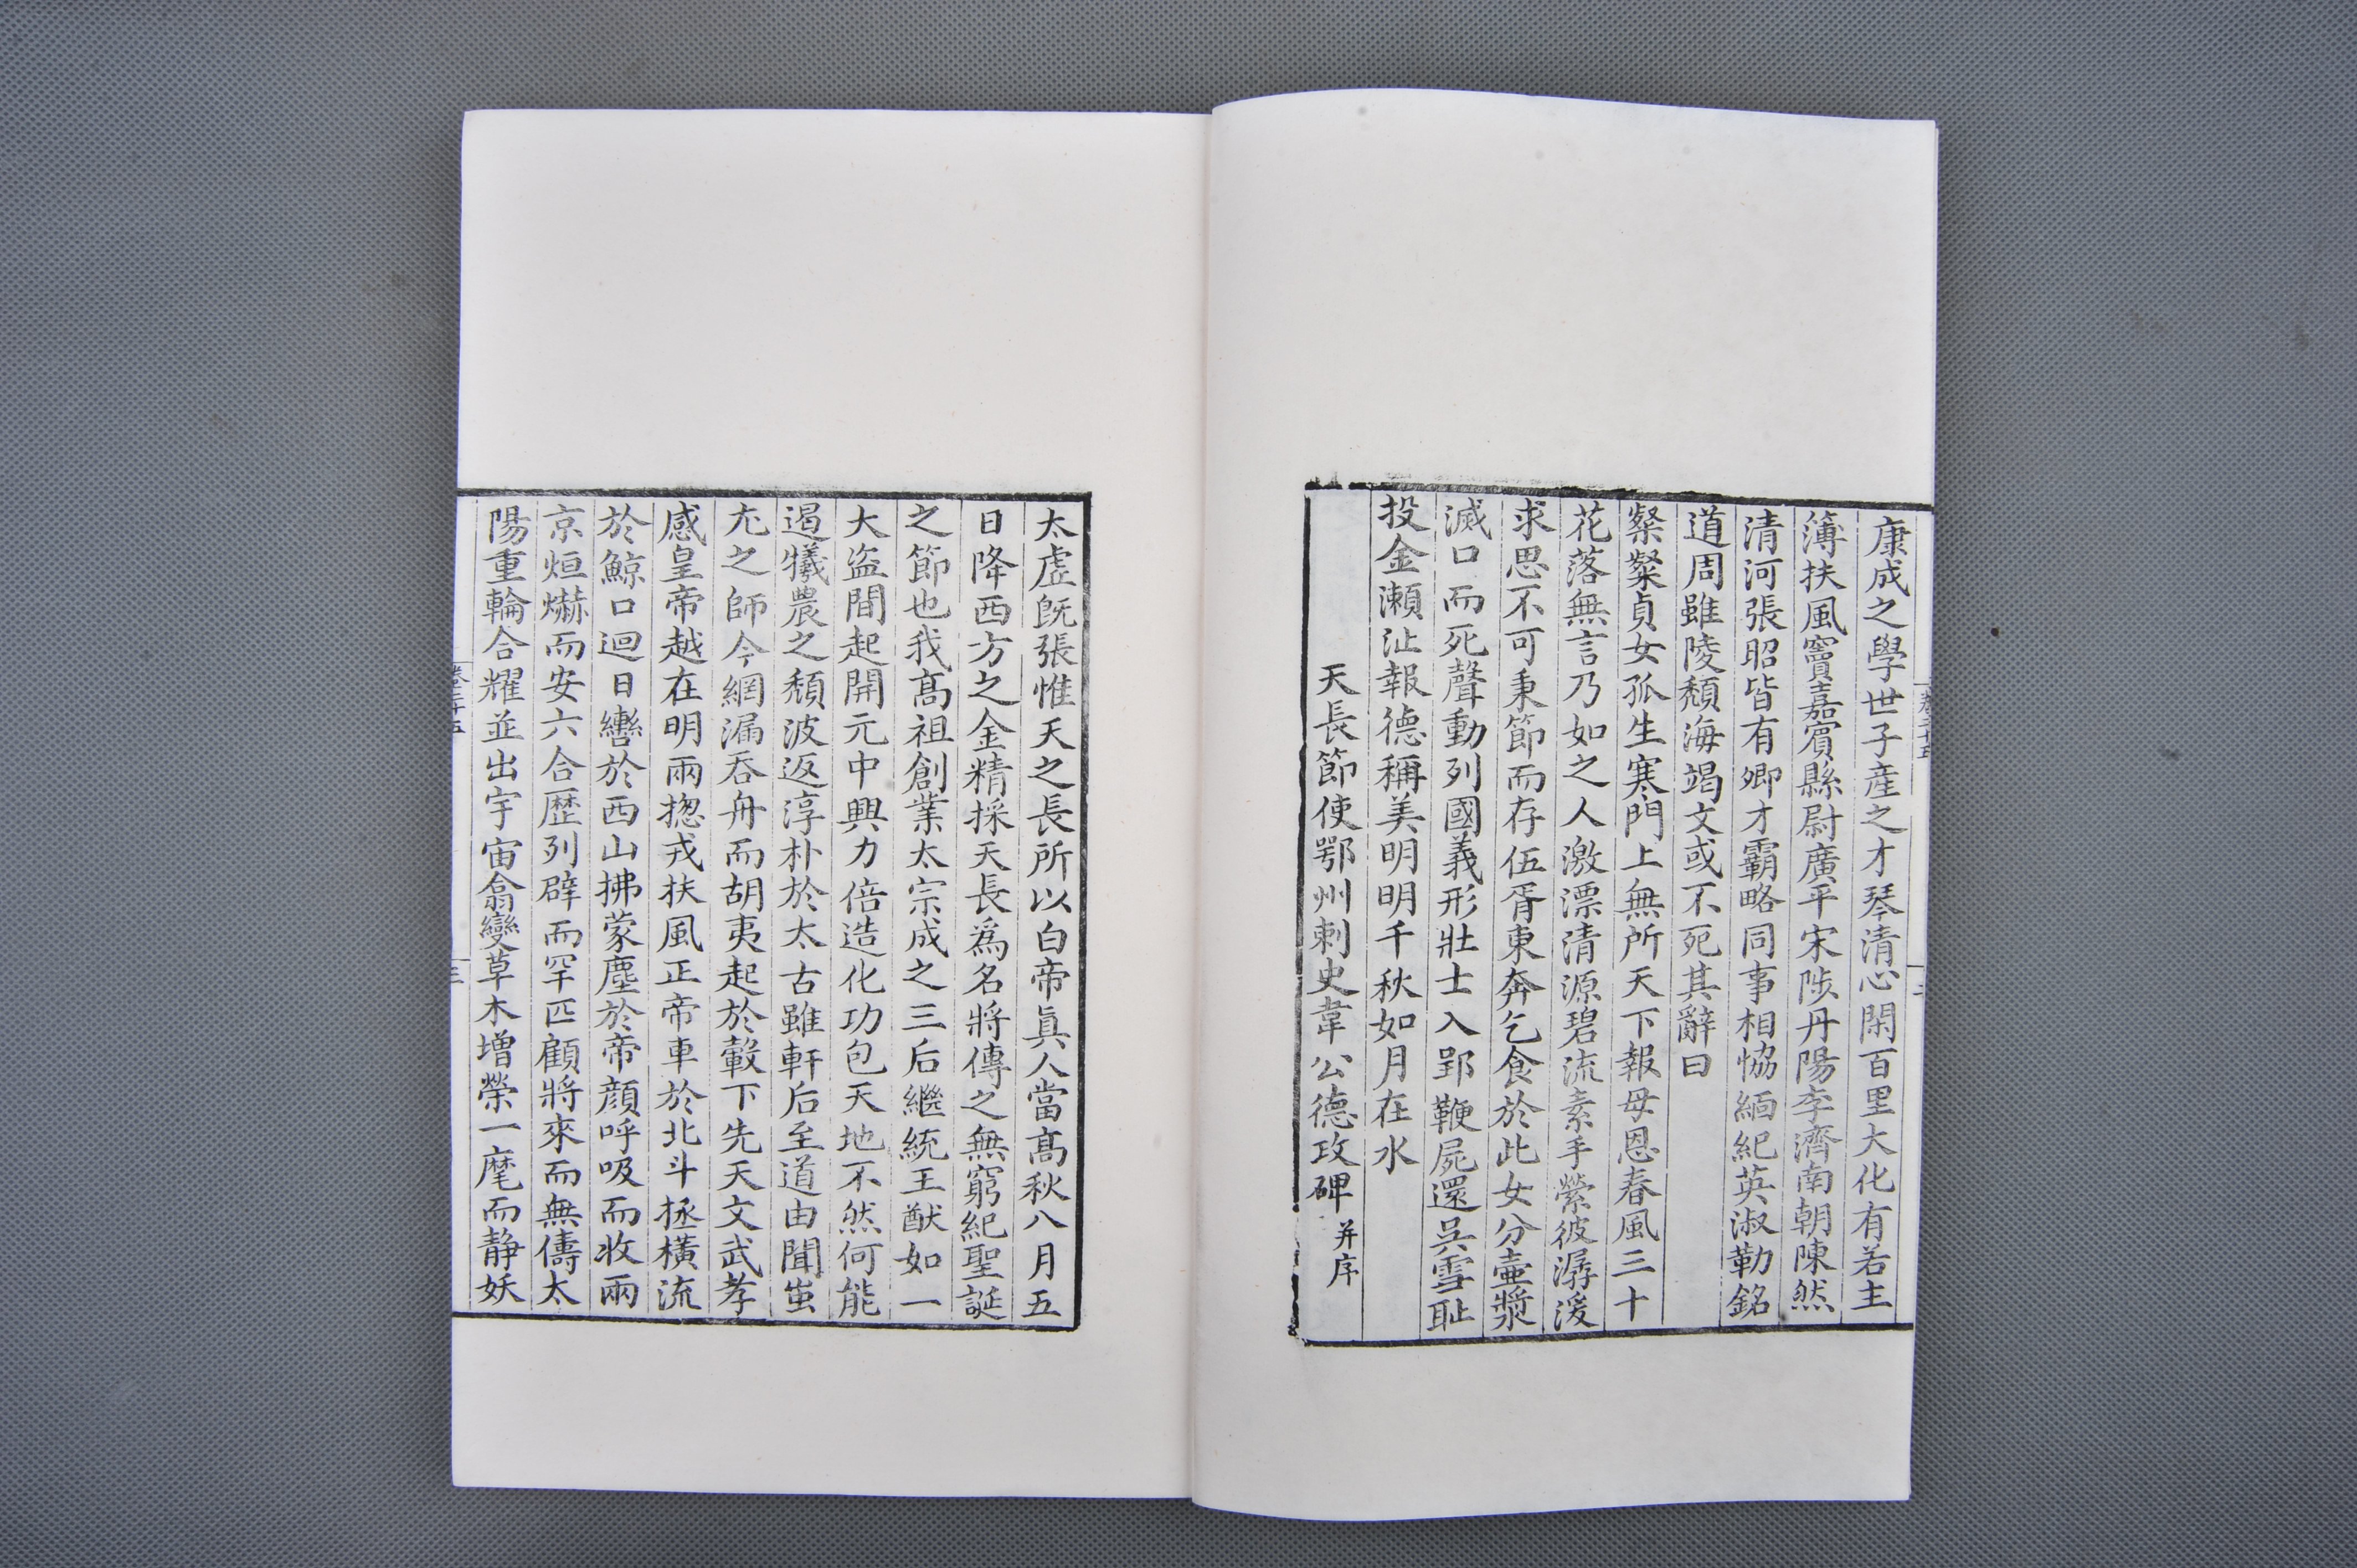 康成之學世子産之才琴清心閑百里大化有若主
簿扶風竇嘉賓縣尉廣平宋陟丹陽李濟南朝陳然
清河張昭皆有卿才霸略同事相恊緬紀英淑勒銘
道周雖陵頽海竭文或不死其辭曰
粲粲貞女孤生寒門上無所天下報母恩春風三十
花落無言乃如之人激漂清源碧流素手縈彼潺湲
求思不可秉節而存伍胥東奔乞食於此女分壷漿
滅口而死聲動列國義形壯士入郢鞭屍還吳雪耻
投金瀨沚報德稱美明明千秋如月在水
天長節使鄂州刺史韋公德政碑并序
太虛旣張惟天之長所以白帝真人當髙秋八月五
日降西方之金精採天長爲名將傳之無窮紀聖誕
之節也我髙祖創業太宗成之三后繼統王猷如一
大盜間起開元中興力倍造化功包天地不然何能
遏犧農之頽波返淳朴於太古雖軒后至道由聞蚩
尤之師今網漏吞舟而胡夷起於轂下先天文武孝
感皇帝越在明兩揔戎扶風正帝車於北斗拯橫流
於鯨口迴日轡於西山拂蒙塵於帝顔呼吸而收兩
京烜爀而安六合歷列辟而罕匹顧將來而無儔太
陽重輪合耀並出宇宙翕變草木增榮一麾而静妖
卷二十五
三